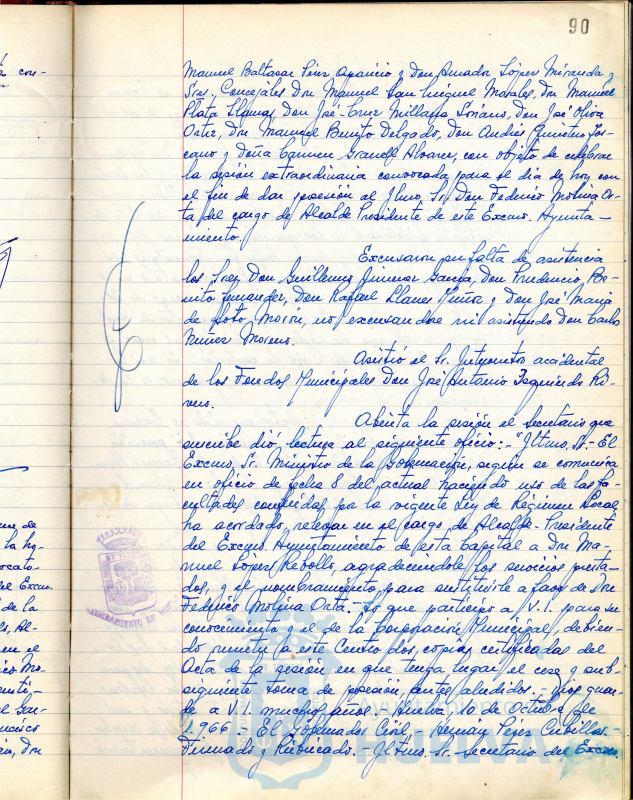 90
Manuel Baltasar Pérez Aparicio y Don Amador López Miranda y
Sres. Concejales Don Manuel San Miguel Morales, Don Manuel
Plata Llamas, Don José-Cruz Millana Soriano, Don José Oliva
Ortiz, Don Manuel Benito Delgado, Don Andrés
cano y Doña Carmen Alvarez, con objeto de celebrar
la sesión extraordinaria convocada para el día de hoy con
el fin de dar posesión al Ilmo. Sr. Don Federico Molina Or-
ta del cargo de Alcalde Presidente de este Excmo. Ayunta-
miento.
Excusaron su falta de asistencia
los Sres. Don Guillermo Jimenez Don Prudencio
Fernandez, Don Rafael Llanes y Don José María
de Soto Morón, no excusandose ni asistiendo Don Carlos
Nuñez Moreno.
Asistió el Sr. Interventor accidental
de los Fondos Municipales Don José Antonio Izquierdo Ri-
vero.
Abierta la sesión el Secretario que
suscribe dió lectura al siguiente oficio:- "Iltmo. Sr.- El
Excmo. Sr. Ministro de la Gobernación, según se comunica
en oficio de fecha 8 del actual haciendo uso de las fa-
cultades conferidas por la vigente Ley de Régimen Local
ha acordado, relevar en su cargo de Alcalde-Presidente
del Excmo. Ayuntamiento de esta Capital a Don Ma-
nuel López Rebollo, agradeciendole los servicios presta-
dos, y el nombramiento para sustituirle a favor de Don
Federico Molina Orta.- Lo que participo a V.I. para su
conocimiento y el de la Corporación Municipal, debien-
do remitir a este Centro dos copias certificadas del
Acta de la sesión en que tenga lugar el cese y sub-
siguiente toma de posesión antes aludidos.- Dios guar-
de a V.I. muchos años.- Huelva 10 de Octubre de
1.966.- El Gobernador Civil.- Hernán Pérez Cubillas.-
Firmado y Rubricado.- Iltmo. Sr. Secretario del Excmo.
AYUNTAMIENTO DE
HUELVA